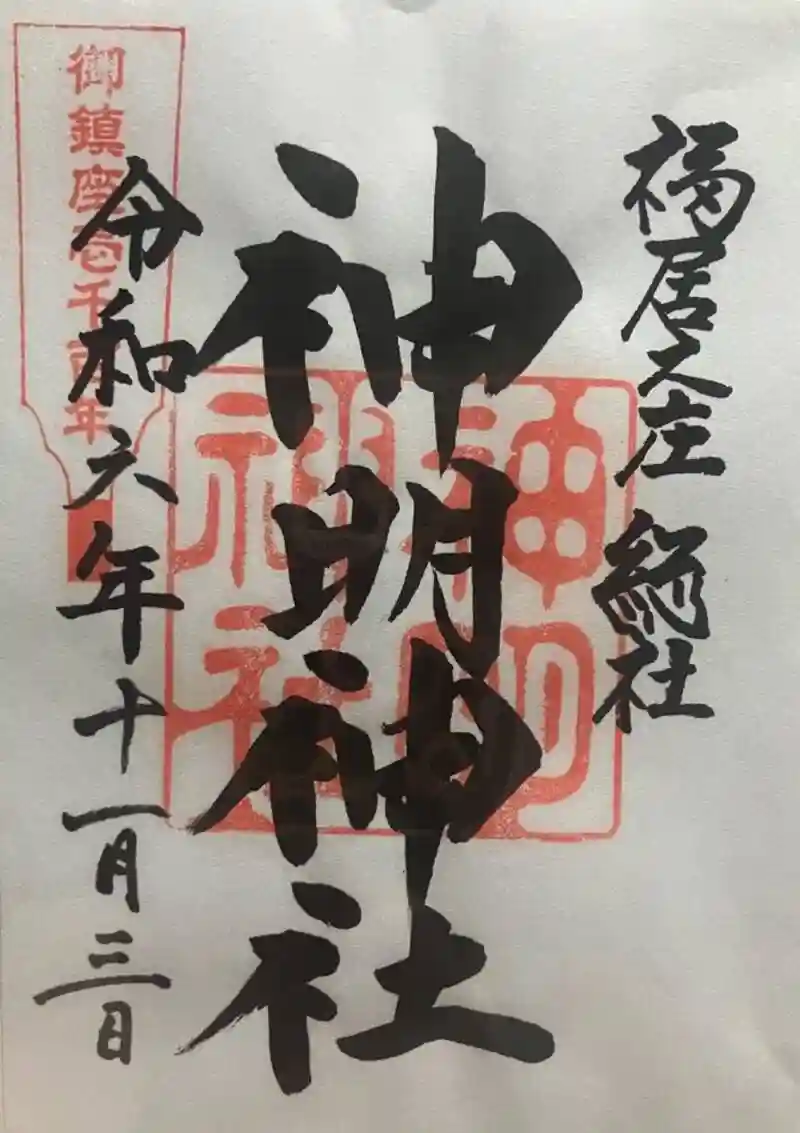 福居之庄 総社
神明神社
神明神社
令和六年十一月三日
御鎮座壱千百年